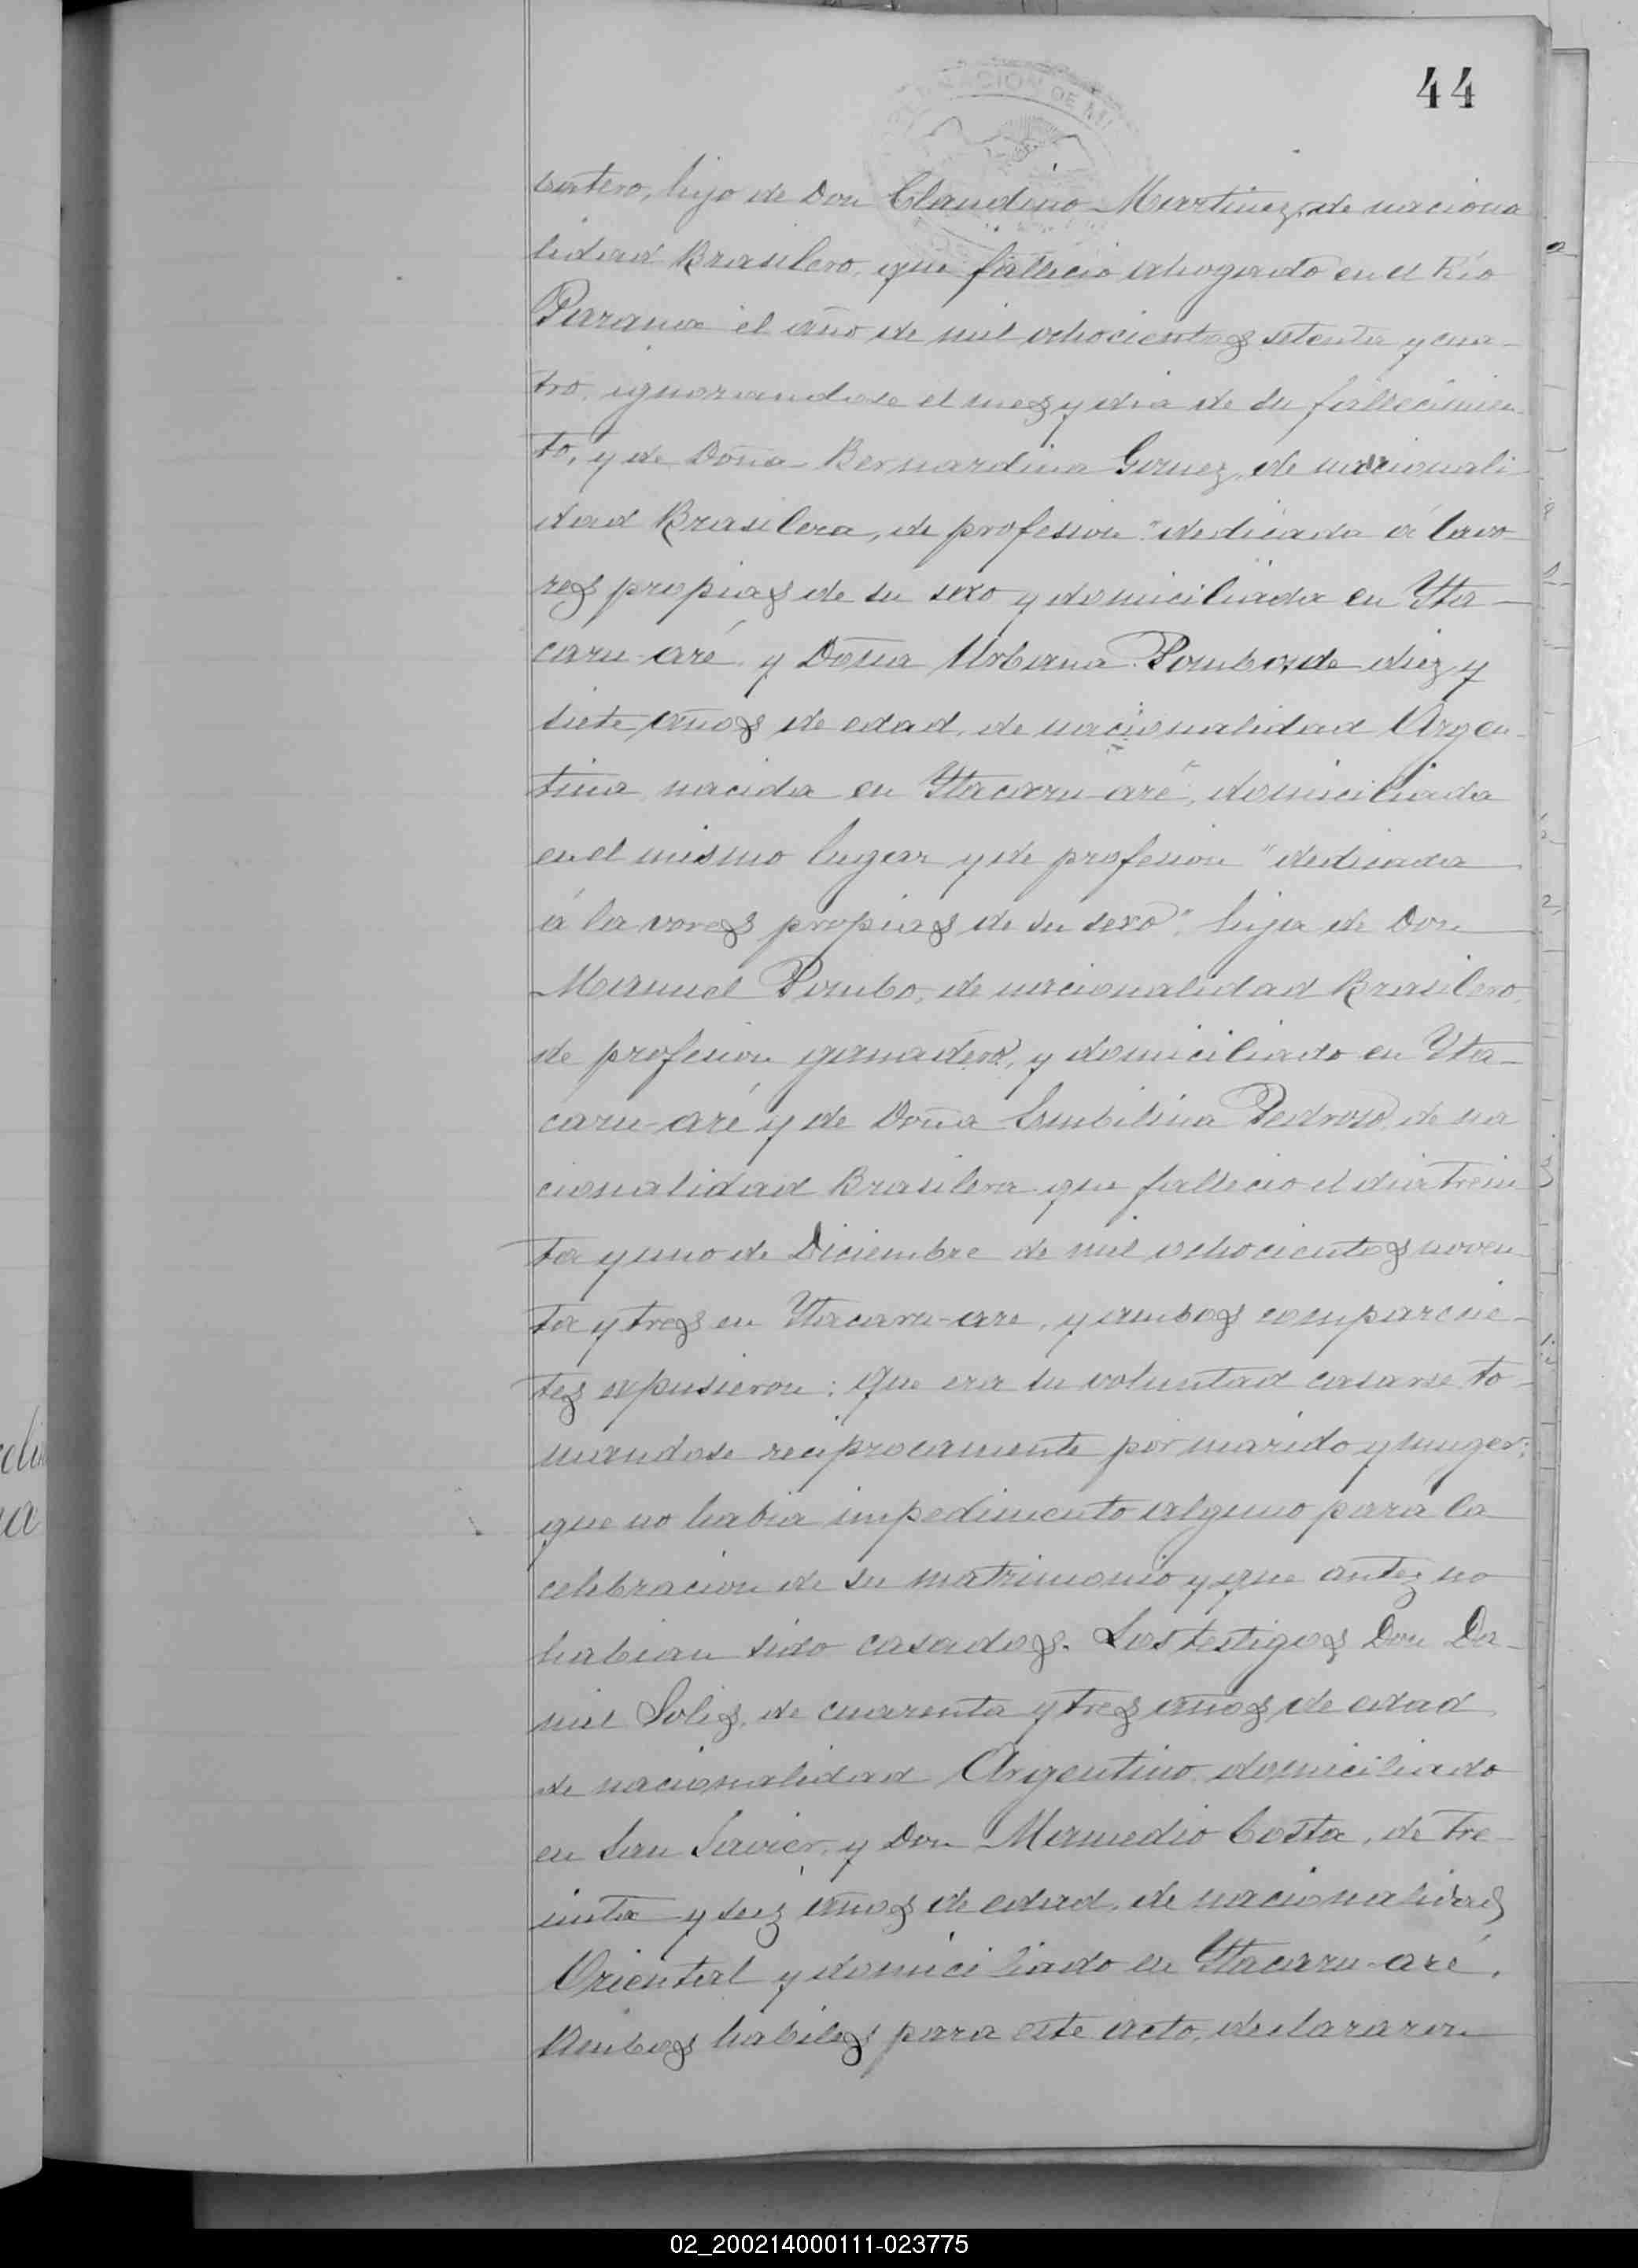 44
NACION DE MI
hijo de Don Claudino Martinez, de naciona
lidad Brasilero, que fallecio ahogado en el Río
Parana el año de mil ochocientos setenta y cua-
tro, ignorandose el mes y dia de su fallecimien
to, y de Doña Bernardina de nacionali
dad Brasilera, de profesion "dedicada á lavo
res propias de su sexo y domiciliada en Yta-
caru-aré, y Doña Urbana Pombo, de diez y
siete años de edad, de nacionalidad Argen-
tina, nacida en Ytacaru-aré, domiciliada
en el mismo lugar y de profesion "dedicada
á la vores propias de su sexo", hija de Don
Manuel Pombo, de nacionalidad Brasilero,
de profesion ganadero, y domiciliado en Yta-
caru-aré y de Doña Pedroso de na
cionalidad Brasilera que fallecio el dia trein
ta y uno de Diciembre de mil ochocientos noven
ta y tres en Ytacaru-are, y ambos comparecie-
tes expusieron: que era su voluntad casarse to-
mandose reciprocamente por marido y muger:
que no habia impedimento alguno para la
celebracion de su matrimonio y que antes no
habian sido casados. Los testigos Don Da-
niel Solis, de cuarenta y tres años de edad,
de nacionalidad Argentino domiciliado
en San Javier, y Don Mamedio Costa, de tre-
inta y seis años de edad, de nacionalidad
Oriental y domiciliado en Ytacaru-aré.
Ambos habiles para este acto, declararon
02_200214000111-023775